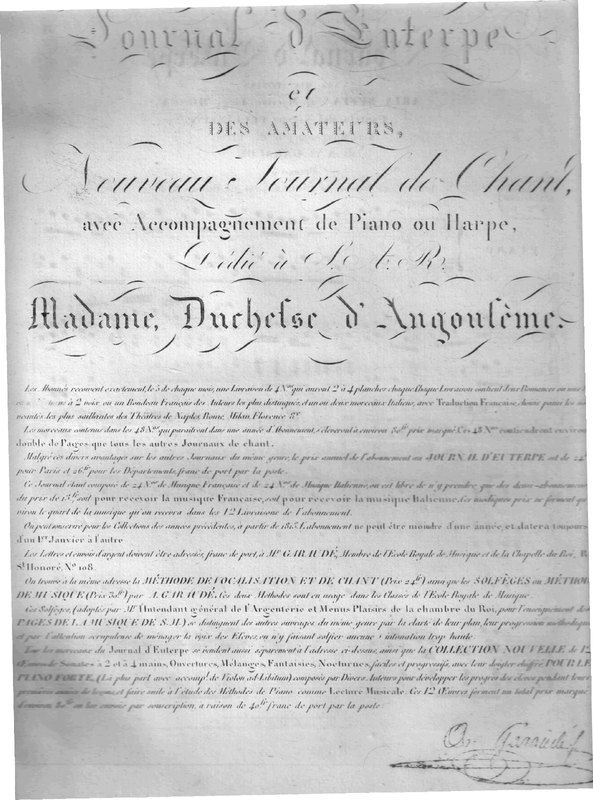 Journal d'Euterpe
et
DES AMATEURS,
Nouveau Journal de Chant,
avec Accompagnement de Piano ou Harpe,
Dédié à S. A. R.
Madame, Duchesse d'Angoulême.
Les Abonnés recevront exactement, le 5 de chaque mois, une Livraison de 4 Nos. qui auront 2 à 4 planches chaque. Chaque Livraison contient deux Romances ou une
à 2 voix, ou un Rondeau Français des Auteurs les plus distingués, et un ou deux morceaux Italiens, avec Traduction Française, choisis parmi les
les plus saillantes des Théâtres de Naples, Rome, Milan, Florence &c.
Les morceaux contenus dans les 48 Nos. qui paraitront dans une année d'Abonnement, s'élèveront à environ prix marqué. Ces 48 Nos. contiendront environ
double de Pages que tous les autres Journaux de chant.
Malgré ces divers avantages sur les autres Journaux du même genre, le prix annuel de l'abonnement au JOURNAL D'EUTERPE est de 24
pour Paris et 26f. pour les Départements, franc de port par la poste.
Ce Journal étant composé de 24 Nos. de Musique Française et de 24 Nos. de Musique Italienne, on est libre de n'y prendre que des demi-abonnements
du prix de soit pour recevoir la musique Française, soit pour recevoir la musique Italienne. Ces modiques prix ne forment qu'
viron le quart de la musique qu'on recevra dans les 12 Livraisons de l'abonnement.
On peut souscrire pour les Collections des années précédentes, à partir de 1813. L'abonnement ne peut être moindre d'une année, et datera toujours
d'un 1er. Janvier à l'autre
Les Lettres et envois d'argent doivent être adressés, franc de port, à Mr. GARAUDÉ, Membre de l'Ecole Royale de Musique et de la Chapelle du Roi,
St. Honoré, No. 108.
On trouve à la même adresse la MÉTHODE DE VOCALISATION ET DE CHANT (Prix 24f.) ainsi que les SOLFÈGES ou MÉTHODE
DE MUSIQUE (Prix 30f.) par A. GARAUDÉ. Ces deux Méthodes sont en usage dans les Classes de l'Ecole Royale de Musique.
Ces Solfèges, (adoptés par Mr. l'Intendant général de l'Argenterie et Menus Plaisirs de la chambre du Roi, pour l'enseignement des
PAGES DE LA MUSIQUE DE S.M.) se distinguent des autres ouvrages du même genre par la clarté de leur plan, leur progression méthodique
et par l'attention scrupuleuse de ménager la voix des Elèves, en n'y faisant solfier aucune intonation trop haute.
Tous les morceaux du Journal d'Euterpe se vendent aussi séparément à l'adresse ci-dessus, ainsi que la COLLECTION NOUVELLE de 12
Œuvres de Sonates à 2 et à 4 mains, Ouvertures, Mélanges, Fantaisies, Nocturnes, faciles et progressifs, avec leur doigter chiffré POUR LE
PIANO FORTE, (La plus part avec accompt. de Violon ad-Libitum) composés par Divers Auteurs pour développer les progrès des élèves pendant leurs
premières années de leçons, et faire suite à l'étude des Méthodes de Piano comme Lecture Musicale. Ces 12 Œuvres forment un total prix marqué
d'environ on les envoie par souscription, à raison de 40f. franc de port par la poste.
Garaudé